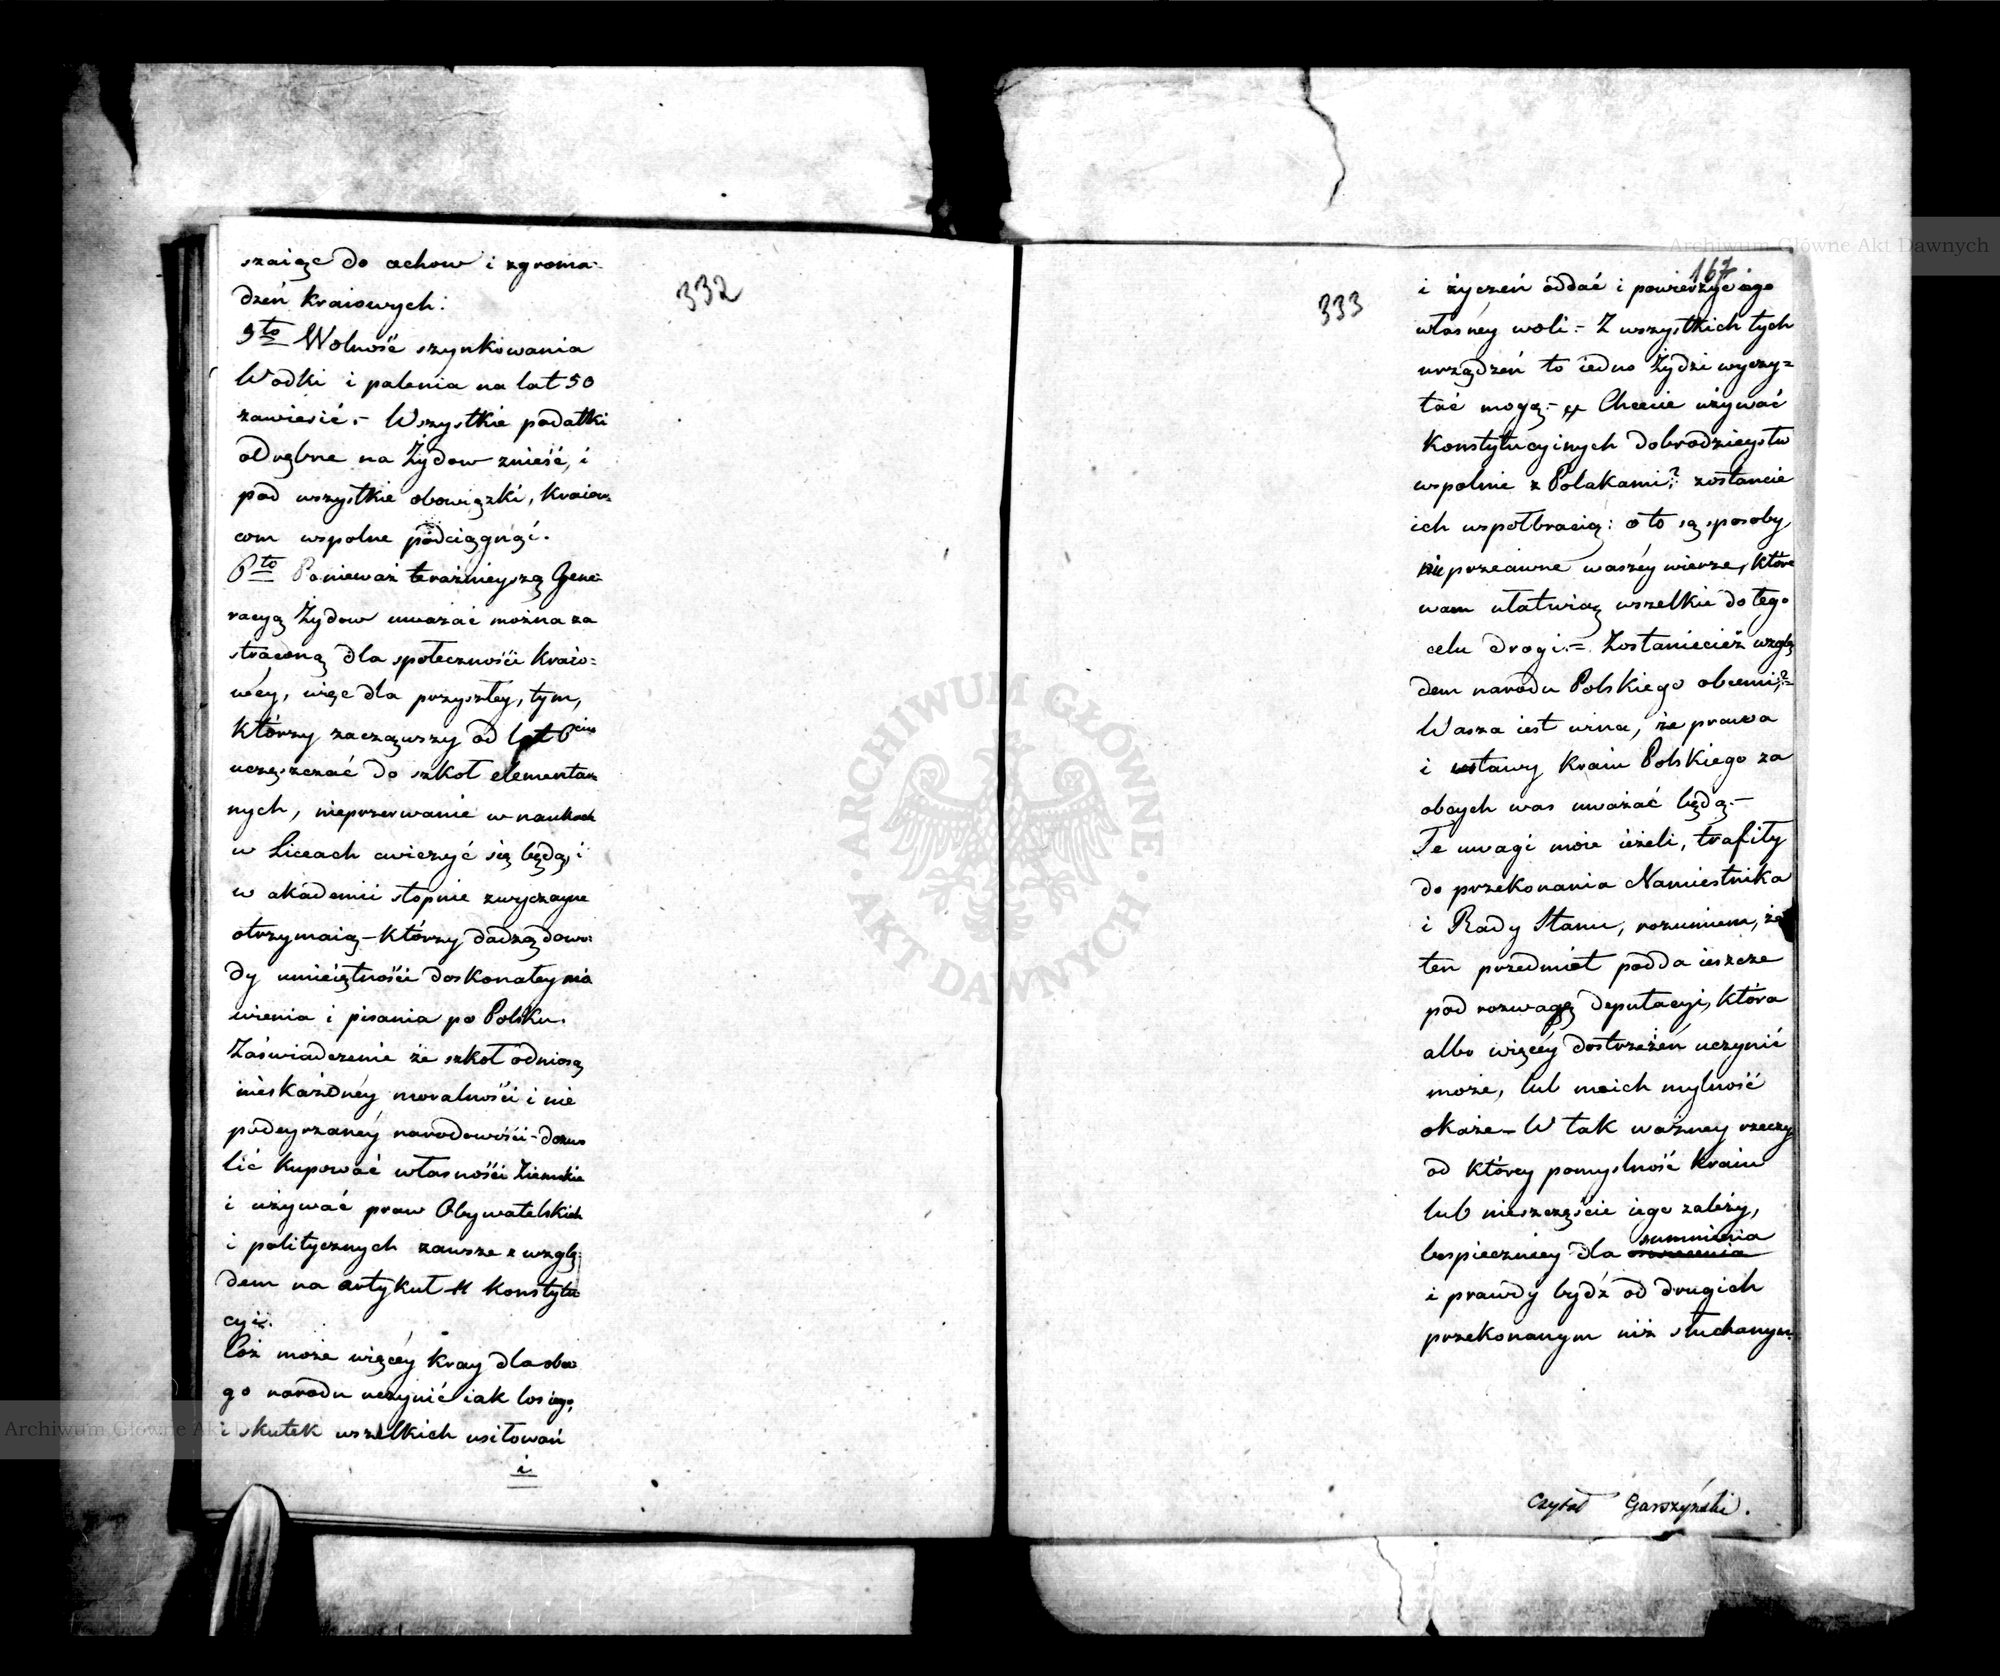 332
szaiąc do cechow i zgroma-
dzeń kraiowych:
5to Wolność szynkowania
Wodki i palenia na lat 50
zawiesić.- Wszystkie podatki
odrębne na Żydow znieść, i
pod wszystkie obowiązki, kraiow-
com wspolne podciągnąć.
6to Ponieważ teraźnieyszą Gene-
racyą Żydow uważać można za
straconą dla społeczności kraio=
wéy, więc dla przyszłey, tym,
którzy zacząwszy od lat 6ciu
uczęszczać do szkoł elementar
nych, nieprzerwanie w naukach
w Liceach cwiczyć się będą, i
w akademii stopnie zwyczayne
otrzymaią - którzy dadzą dowo-
dy umieiętności doskonałey mó
wienia i pisania po Polsku.
Zaświadczenie że szkoł odniosą
nieskażoney moralności i nie
podeyrzanéy narodowości - dozwo
lić kupować własności Ziemskie
i używać praw Obywatelskich
i politycznych zawsze z wzglę-
dem na artykuł 11 Konstytu
cyi.
Coż może więcéy kray dla obce
go narodu uczynić iak los iego,
i skutek wszelkich usiłowań
i
167
333
i życzeń oddać i powierzyć iego
własnéy woli.- Z wszystkich tych
urządzeń to iedno Żydzi wyczy=
tać mogą.- Chcecie używać
Konstytucyinych dobrodzieystw
wspolnie z Polakami? zostancie
ich wspołbracią: oto są sposoby
nieprzeciwne waszéy wierze, które
wam ułatwią wszelkie do tego
celu drogi.= Zostaniecież wzglę
dem narodu Polskiego obcemi?=
Wasza iest wina, że prawa
i ustawy kraiu Polskiego za
obcych was uważać będą.-
Te uwagi moie ieżeli, trafiły
do przekonania Namiestnika
i Rady Stanu, rozumiem, że
ten przedmiot podda ieszcze
pod rozwagę deputacyi, która
albo więcéy dostrzeżeń uczynić
może, lub moich mylność
okaże - W tak ważney rzeczy
od którey pomyslność kraiu
lub nieszczęście iego zależy,
bespieczniey dla sumnienia
i prawdy bydź od drugich
przekonanym niż słuchanym.
Czytał Garszyński.
Archiwum Główne Akt Dawnych
ARCHIWUM GŁÓWNE
AKT DAWNYCH
Archiwum Główne Akt Dawnych